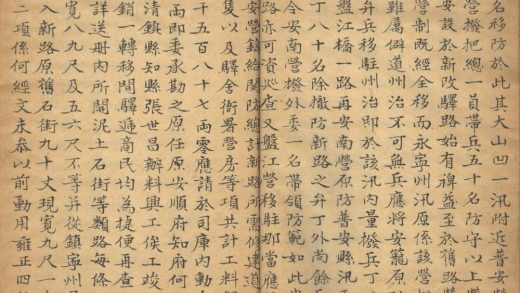 名移防於此其大山凹一汛附近普安
營撥把總一員帶兵五十名防守以上
安設於新改驛路始有裨益至於舊路
營制既經全移而永寧州汛原係該營
雖屬僻道州治不可無兵應將安龍原
弁兵移駐州治即於該汛內量撥兵丁
盤江橋一路再安南營原防普安縣汛
丁八十名除撤防新路之弁丁外尚餘
令安南營撥外委一名帶領防範如此
路亦可資巡查又盤江營移駐那當應
安營鎮給關防總計新路所需修建道
隻以及驛舍衙署營房等項共計工料
千五百八十七兩零應請於司庫內動
兩即委承勘之原任安順府知府何
清鎮縣知縣張世昌辦料興工俟工竣
銷一轉移間驛遞商民均為捷便再查
詳送冊內所開泥土石街等類路每條
寬八九尺及五六尺不等并從鎮寧州
入新路原舊石街九十丈現寬九尺一
二項係何經文未參以前動用雍正四